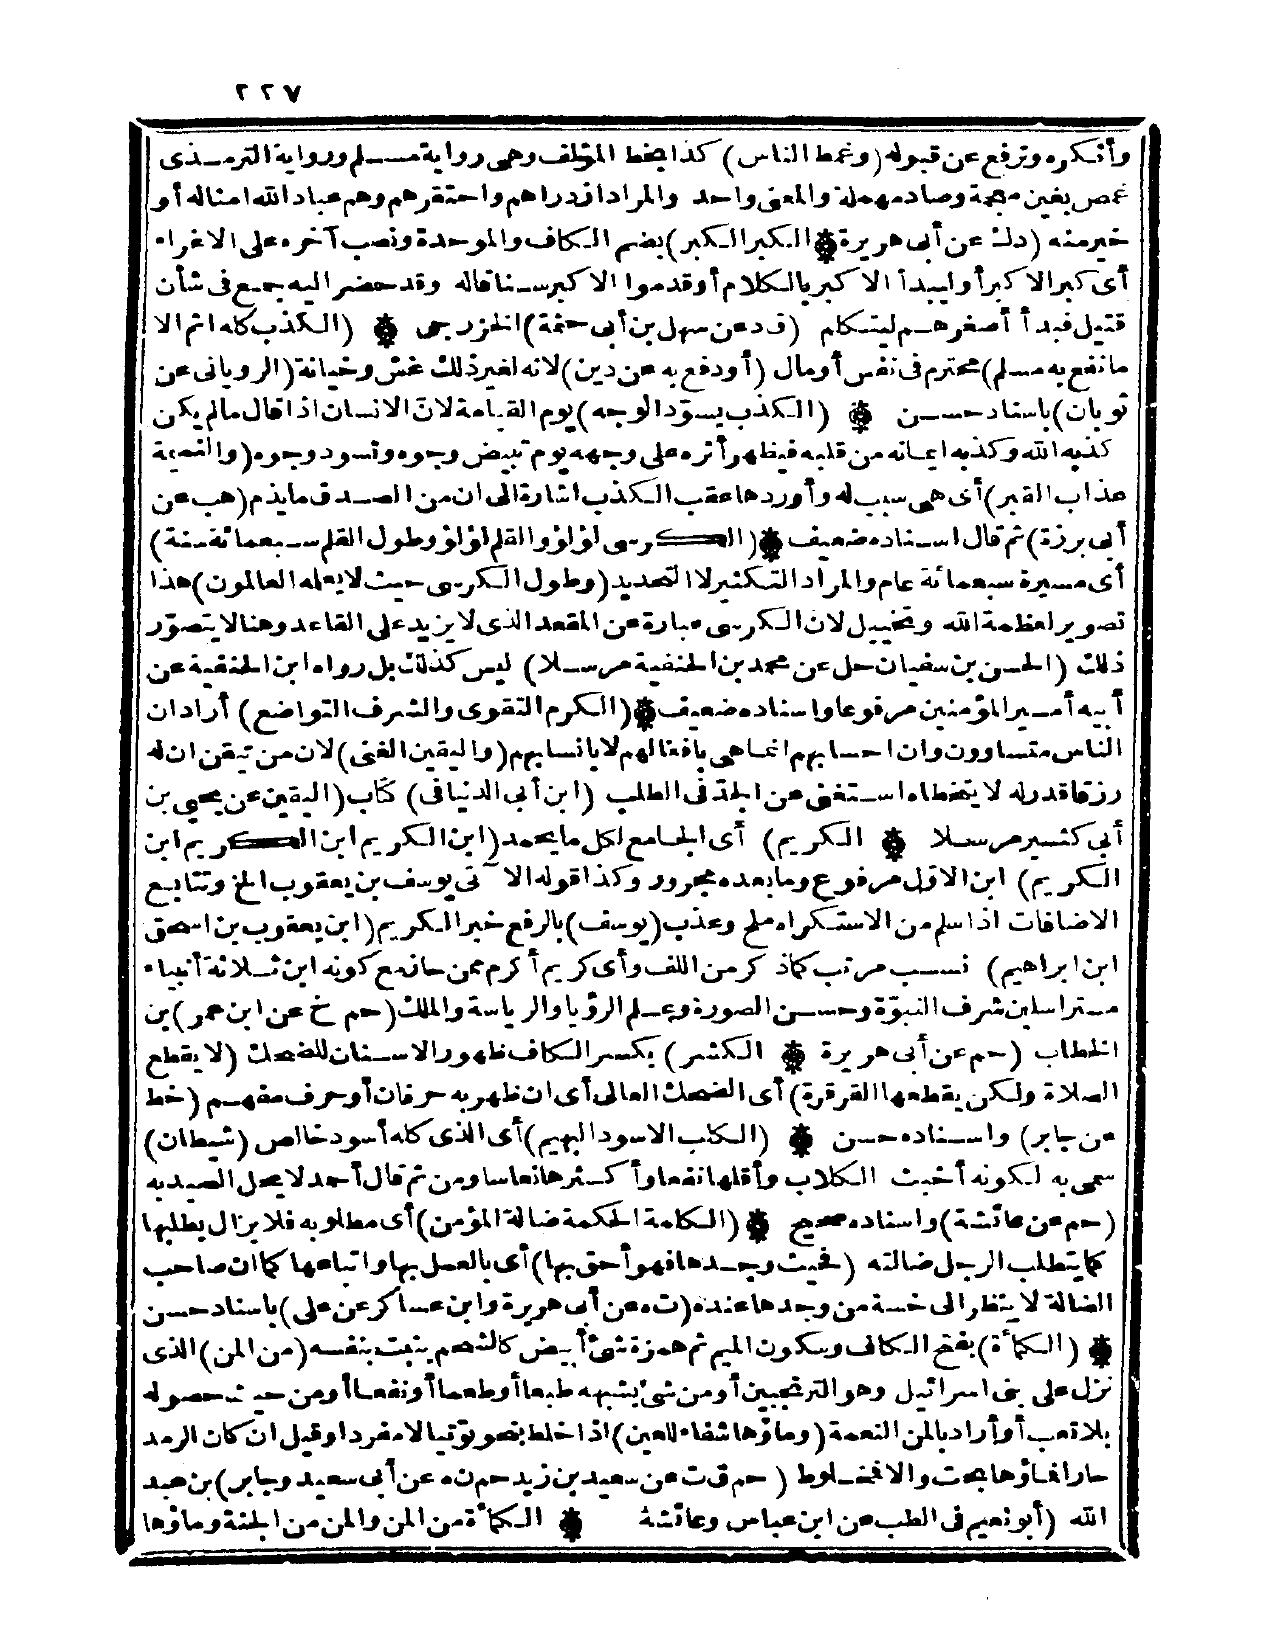 ٢٢٧
وأنكره وترفع عن قبوله (وغمط الناس) كذا بخط المؤلف وهى رواية مسلم ورواية الترمذى
غمص بغين معجمة وصاد مهملة والمعنى واحد والمراد ازدراهم واحتقرهم وهم عباد الله امثاله أو
خير منه (دك عن أبى هريرة ۞ الكبر الكبر) بضم الكاف والموحدة ونصب آخره على الاغراء
أى كبر الاكبر أو ليبدأ الاكبر بالكلام أو قدموا الاكبر سنا قاله وقد حضر اليه جمع فى شأن
قتيل فبدأ أصغرهم ليتكلم (ق د عن سهل بن أبى حثمة) الخزرجى ۞ (الكذب كله اثم الا
ما نفع به مسلم) محترم فى نفس أو مال (أو دفع به عن دين) لانه لغير ذلك غش وخيانة (الرويانى عن
ثوبان) باسناد حسن ۞ (الكذب يسود الوجه) يوم القيامة لان الانسان اذا قال ما لم يكن
كذبه الله وكذبه ايمانه من قلبه فيظهر أثره على وجهه يوم تبيض وجوه وتسود وجوه (والنميمة
عذاب القبر) أى هى سبب له وأوردها عقب الكذب اشارة الى ان من الصدق ما يذم (هب عن
أبى برزة) ثم قال اسناده ضعيف ۞ (الكرسى لؤلؤ والقلم لؤلؤ وطول القلم سبعمائة سنة)
أى مسيرة سبعمائة عام والمراد التكثير لا التحديد (وطول الكرسى حيث لا يعلمه العالمون) هذا
تصوير لعظمة الله وتخييل لان الكرسى عبارة عن المقعد الذى لا يزيد على القاعد وهنا لا يتصور
ذلك (الحسن بن سفيان حل عن محمد بن الحنفية مرسلا) ليس كذلك بل رواه ابن الحنفية عن
أبيه أمير المؤمنين مرفوعا واسناده ضعيف ۞ (الكرم التقوى والشرف التواضع) أراد ان
الناس متساوون وان احسابهم انما هى بافعالهم لا بانسابهم (واليقين الغنى) لان من تيقن ان له
رزقا قدر له لا يتخطاه استغنى عن الجد فى الطلب (ابن أبى الدنيا فى) كتاب (اليقين عن يحيى بن
أبى كثير مرسلا ۞ الكريم) أى الجامع لكل ما يحمد (ابن الكريم ابن الكريم ابن
الكريم) ابن الاول مرفوع وما بعده مجرور وكذا قوله الآتى يوسف بن يعقوب الخ وتتابع
الاضافات اذا سلم من الاستكراه ملح وعذب (يوسف) بالرفع خبر الكريم (ابن يعقوب بن اسحق
ابن ابراهيم) نسب مرتب كما ذكر من اللف وأى كريم أكرم ممن حاز مع كونه ابن ثلاثة أنبياء
متراسلين شرف النبوة وحسن الصورة وعلم الرؤيا والرياسة والملك (حم خ عن ابن عمر) بن
الخطاب (حم عن أبى هريرة ۞ الكشر) بكسر الكاف ظهور الاسنان للضحك (لا يقطع
الصلاة ولكن يقطعها القرقرة) أى الضحك العالى أى ان ظهر به حرفان أو حرف مفهم (خط
عن جابر) واسناده حسن ۞ (الكلب الاسود البهيم) أى الذى كله أسود خالص (شيطان)
سمى به لكونه أخبث الكلاب وأقلها نفعا وأكثرها نعاسا ومن ثم قال أحمد لا يحل الصيد به
(حم عن عائشة) واسناده صحيح ۞ (الكلمة الحكمة ضالة المؤمن) أى مطلوبه فلا يزال يطلبها
كما يتطلب الرجل ضالته (فحيث وجدها فهو أحق بها) أى بالعمل بها واتباعها كما ان صاحب
الضالة لا ينظر الى خسة من وجدها عنده (ت ه عن أبى هريرة وابن عساكر عن على) باسناد حسن
۞ (الكمأة) بفتح الكاف وسكون الميم ثم همزة شئ أبيض كالشحم ينبت بنفسه (من المن) الذى
نزل على بنى اسرائيل وهو الترنجبين أو من شئ يشبهه طبعا أو طعما أو نفعا أو من حيث حصوله
بلا تعب أو أراد بالمن النعمة (وماؤها شفاء للعين) اذا خلط بنحو توتيا لا مفردا وقيل ان كان الرمد
حارا فماؤها بحت والا فمخلوط (حم ق ت عن سعيد بن زيد حم ن ه عن أبى سعيد وجابر) بن عبد
الله (أبو نعيم فى الطب عن ابن عباس وعائشة ۞ الكمأة من المن والمن من الجنة وماؤها